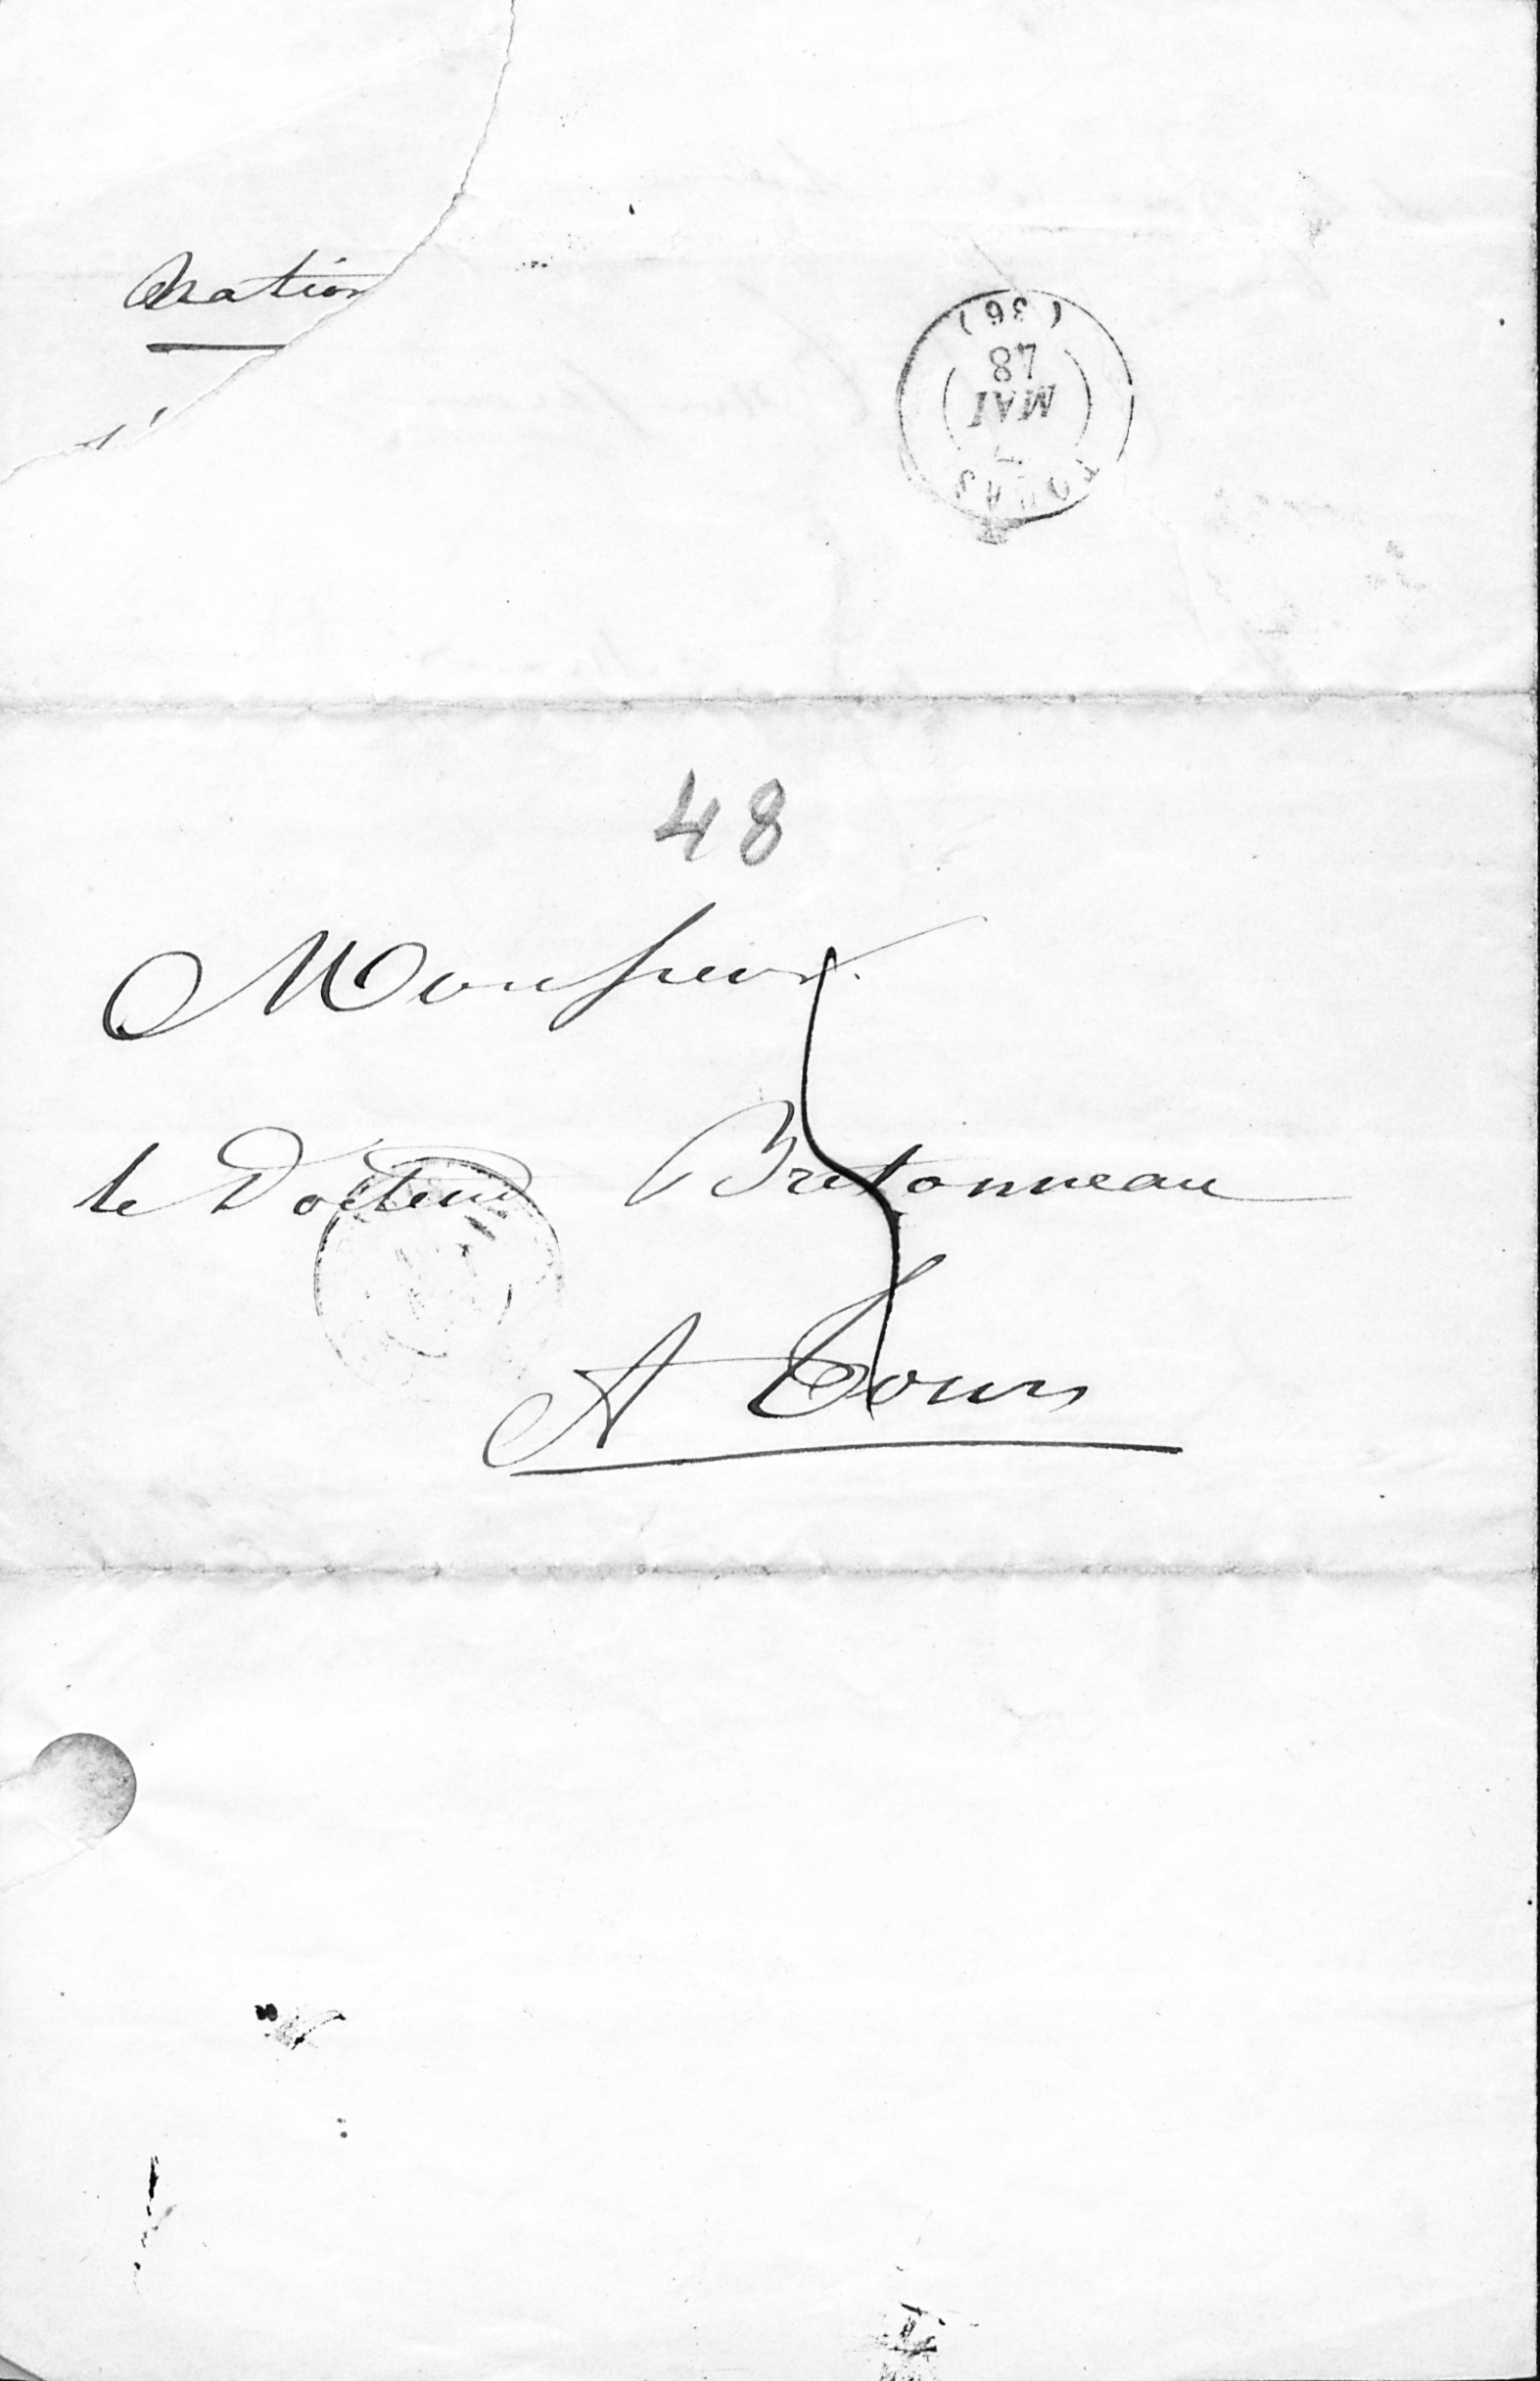 TOURS
MAI
48
(36)
48
Monsieur
le Docteur Bretonneau
5
A Tours